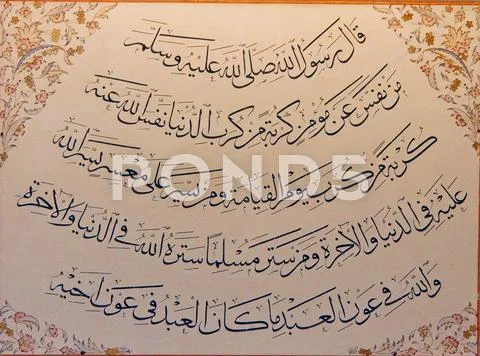 قال رسول الله صلى الله عليه وسلم
من نفس عن مؤمن كربة من كرب الدنيا نفس الله عنه
كربة من كرب يوم القيامة ومن يسر على معسر يسر الله
عليه في الدنيا والآخرة ومن ستر مسلما ستره الله في الدنيا والآخرة
والله في عون العبد ما كان العبد في عون اخيه
POND5